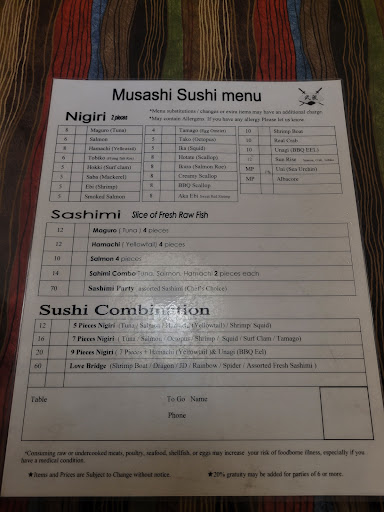 Musashi Sushi menu
Nigiri 2 pieces
*Menu substitutions / changes or extra items may have an additional charge
*May contain Allergens. If you have any allergy Please let us know.
8 Maguro (Tuna) 4 Tamago (Egg Omelet) 10 Shrimp Boat
6 Salmon 5 Tako (Octopus) 10 Boat Crab
8 Hamachi (Yellowtail) 5 Ika (Squid) 10 Unagi (BBQ EEL)
6 Tobiko 8 Hotate (Scallop) 12 Sun Rise
5 Hokki (Surf clam) 8 Ikura (Salmon Roe) MP Uni (Sea Urchin)
5 Saba (Mackerel) 8 Creamy Scallop MP Albacore
5 Ebi (Shrimp) 8 BBQ Scallop
5 Smoked Salmon 8 Ama Ebi
Sashimi Slice of Fresh Raw Fish
12 Maguro ( Tuna ) 4 pieces
12 Hamachi ( Yellowtail) 4 pieces
10 Salmon 4 pieces
14 Sahimi Combo Tuna, Salmon, Hamachi 2 pieces each
70 Sashimi Party assorted Sashimi (Chef's Choice)
Sushi Combination
12 5 Pieces Nigiri (Tuna/ Salmon / Hamachi (Yellowtail) / Shrimp/ Squid)
16 7 Pieces Nigiri ( Tuna / Salmon / Octopus / Shrimp / Squid / Surf Clam / Tamago)
20 9 Pieces Nigiri ( 7 Pieces + Hamachi (Yellowtail )& Unagi (BBQ Eel)
60 Love Bridge (Shrimp Boat / Dragon / JD / Rainbow / Spider / Assorted Fresh Sashimi )
Table To Go Name
Phone
*Consuming raw or undercooked meats, poultry, seafood, shellfish, or eggs may increase your risk of foodborne illness, especially if you
have a medical condition.
★Items and Prices are Subject to Change without notice. ★20% gratuity may be added for parties of 6 or more.